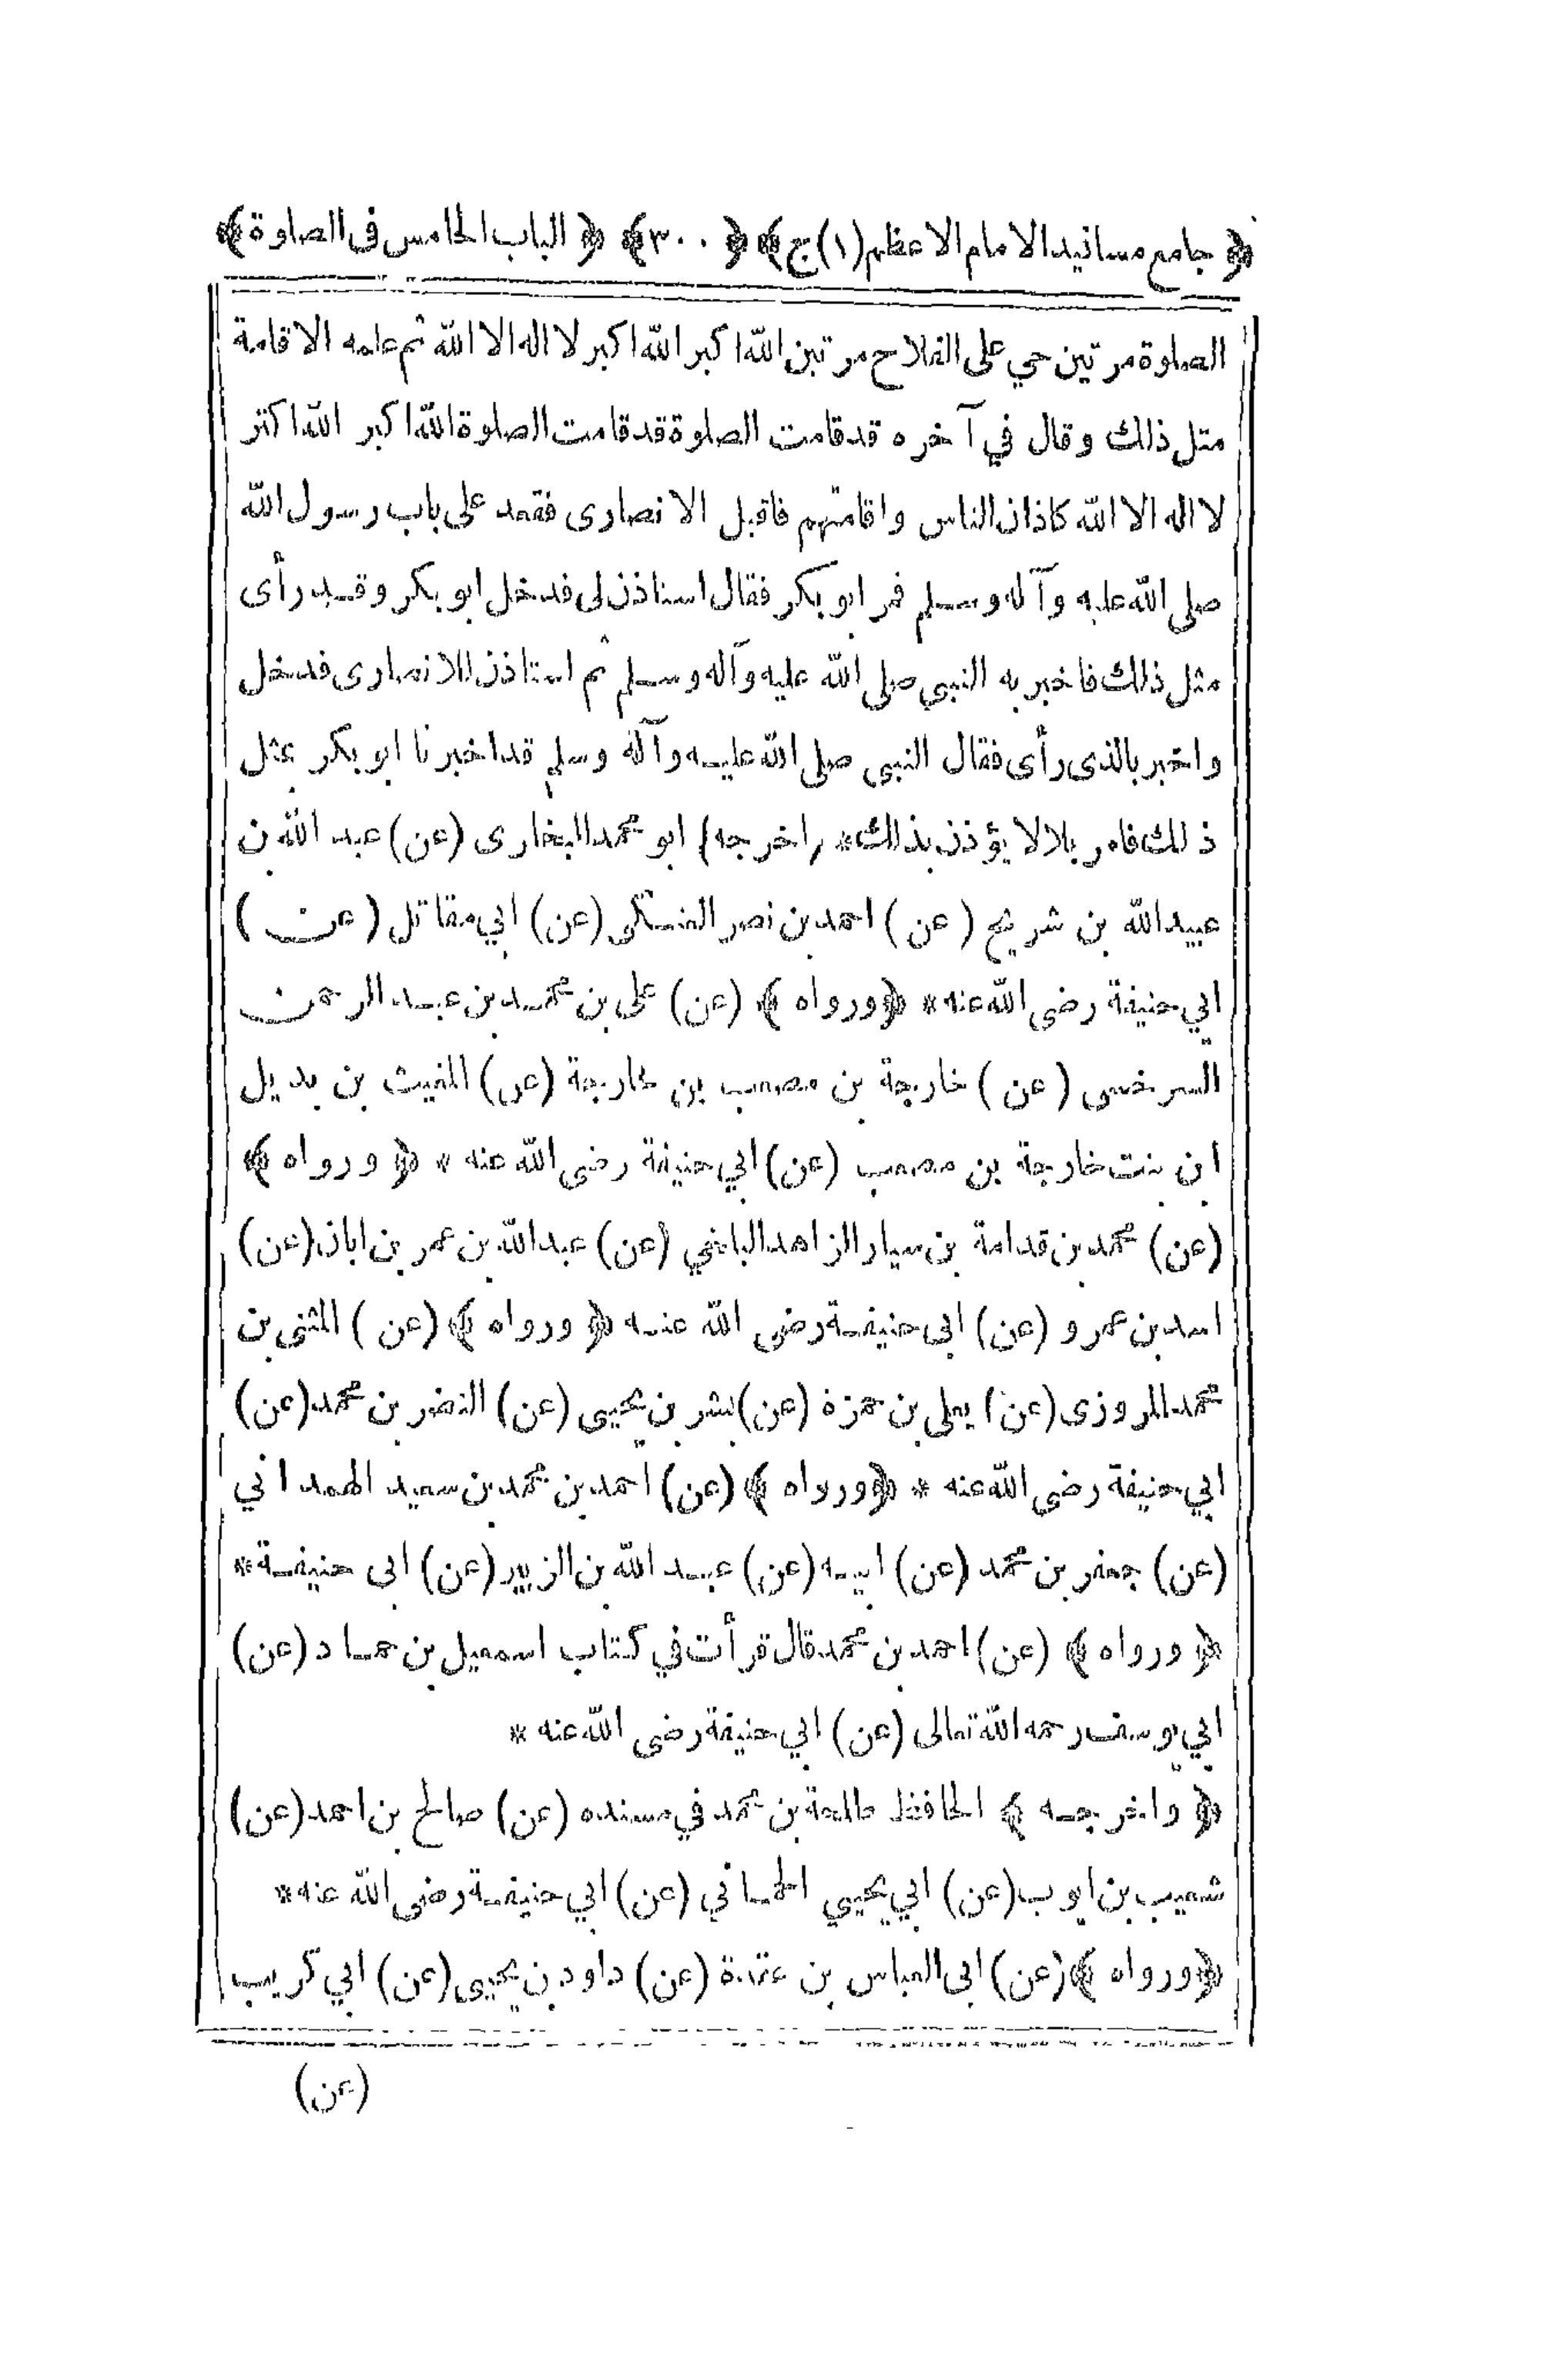 ﴿ جامع مسانيد الامام الاعظم (١) ج ﴾ ﴿ ٣٠٠ ﴾ ﴿ الباب الخامس فى الصلوة ﴾
الصلوة مرتين حي على الفلاح مرتين الله اكبر الله اكبر لا اله الا الله ثم علمه الاقامة
مثل ذلك وقال في آخره قدقامت الصلوة قدقامت الصلوة الله اكبر الله اكبر
لا اله الا الله كاذان الناس واقامتهم فاقبل الانصارى فقعد على باب رسول الله
صلى الله عليه وآله وسلم فمر ابو بكر فقال استاذن لى فدخل ابو بكر وقد رأى
مثل ذلك فاخبر به النبي صلى الله عليه وآله وسلم ثم استاذن للانصارى فدخل
واخبر بالذى رأى فقال النبي صلى الله عليه وآله وسلم قد اخبرنا ابو بكر بمثل
ذلك فامر بلالا يؤذن بذلك * (اخرجه) ابو محمد البخارى (عن) عبد الله بن
عبيد الله بن شريح (عن) احمد بن نصر العتكى (عن) ابي مقاتل (عن)
ابي حنيفة رضى الله عنه * ﴿ ورواه ﴾ (عن) على بن محمد بن عبد الرحمن
السرخسى (عن) خارجة بن مصعب بن خارجة (عن) المغيث بن بديل
ابن بنت خارجة بن مصعب (عن) ابي حنيفة رضى الله عنه * ﴿ ورواه ﴾
(عن) محمد بن قدامة بن سيار الزاهد البلخي (عن) عبد الله بن عمر بن ابان (عن)
اسد بن عمرو (عن) ابى حنيفة رضى الله عنه ﴿ ورواه ﴾ (عن) المثنى بن
محمد المروزى (عن) يعلى بن حمزة (عن) بشر بن يحيى (عن) النضر بن محمد (عن)
ابي حنيفة رضى الله عنه * ﴿ ورواه ﴾ (عن) احمد بن محمد بن سعيد الهمداني
(عن) جعفر بن محمد (عن) ابيه (عن) عبد الله بن الزبير (عن) ابى حنيفة *
﴿ ورواه ﴾ (عن) احمد بن محمد قال قرأت في كتاب اسمعيل بن حماد (عن)
ابي يوسف رحمه الله تعالى (عن) ابي حنيفة رضى الله عنه *
﴿ واخرجه ﴾ الحافظ طلحة بن محمد في مسنده (عن) صالح بن احمد (عن)
شعيب بن ايوب (عن) ابي يحيى الحماني (عن) ابي حنيفة رضى الله عنه *
﴿ ورواه ﴾ (عن) ابى العباس بن عقدة (عن) داود بن يحيى (عن) ابي كريب
(عن)